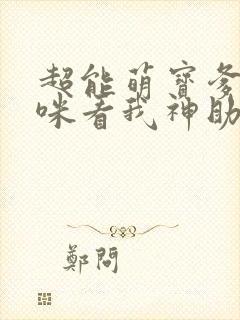 超能萌寶爹
咪看我神助
鄭問